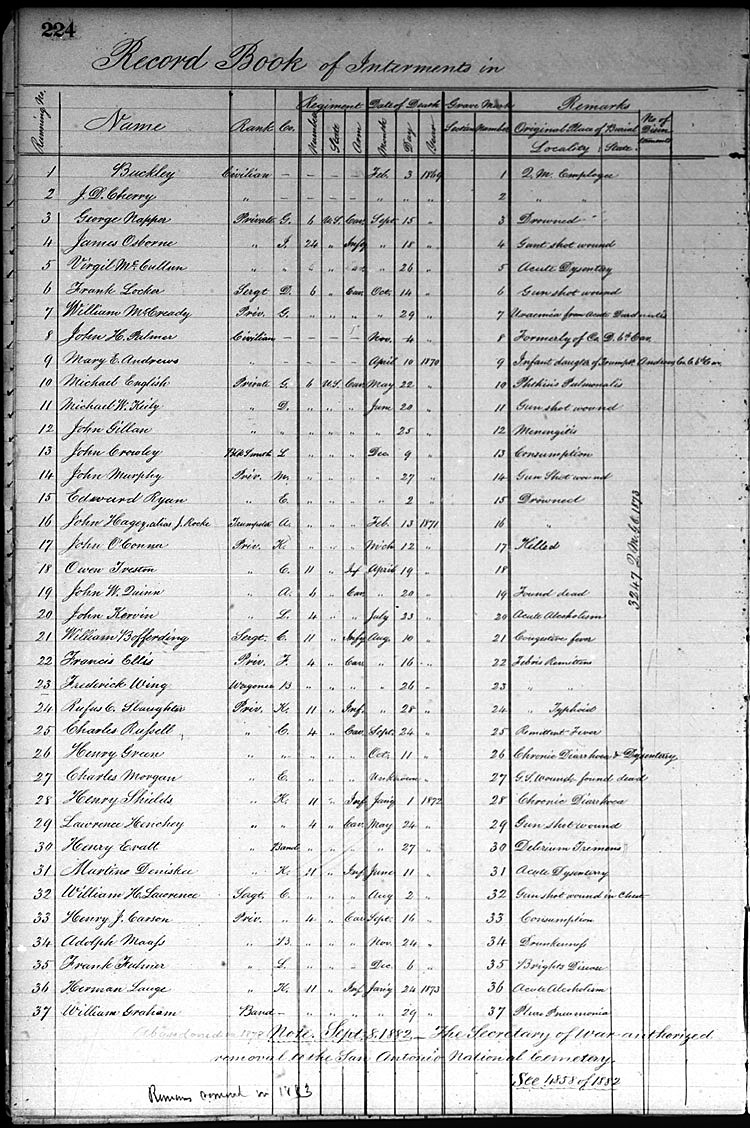 224
Record Book of Interments in
Running No. Name Rank Co. Regiment Number State Arm Date of Death Month Day Year Grave Mark Section Number Remarks Original Place of Burial Locality State No of Disinterments
1 Buckley Civilian – – – – Feb. 3 1869 1 Q. M. Employee
2 J. D. Cherry " – – – – " " " 2 " "
3 George Napper Private G. 6 U.S. Cav. Sept. 15 " 3 Drowned
4 James Osborne " I. 24 " Infy " 18 " 4 Gunt shot wound
5 Virgil McCullun " " " " " " 26 " 5 Acute Dysentry
6 Frank Locker Sergt D. 6 " Cav. Oct. 14 " 6 Gun shot wound
7 William McCready Priv. G. " " " " 29 " 7 Uraemia from Acute
8 John H. Palmer Civilian – – – – Nov. 4 " 8 Formerly of Co. D. 6th Cav.
9 Mary E. Andrews – – – – April 10 1870 9 Infant daugtr of Trumptr. Andrews Co. 6th Cav.
10 Michael English Private G. 6 U.S. Cav. May 22 " 10 Phthisis Pulmonalis
11 Michael W. Kiely " D. " " " June 20 " 11 Gun shot wound
12 John Gillan " " " " " " 25 " 12 Meningitis
13 John Crowley Blk Smith L " " " Dec. 9 " 13 Consumption
14 John Murphy Priv. M. " " " " 27 " 14 Gun Shot wound
15 Edward Ryan " E. " " " " 2 " 15 Drowned
16 John Hagez, alias J. Roche Trumpeter A. " " " Feb. 13 1871 16 "
17 John O'Conna Priv. K. " " " Mch 12 " 17 Killed
18 Owen Treston " C. 11 " Inf April 19 " 18
19 John W. Quinn " A. 6 " Cav. " 20 " 19 Found dead
20 John Kervin " L. 4 " " July 23 " 20 Acute Alcoholism
21 William Boffording Sergt. C. 11 " Infy Aug. 10 " 21 Congestive fever
22 Francis Ellis Priv. F. 4 " Cav. " 16 " 22 Febris Remittens
23 Frederick Wing Wagoner B " " " " 26 " 23 " "
24 Rufus C. Slaughter Priv. K. 11 " Inf. " 28 " 24 " Typhoid
25 Charles Russell " C. 4 " Cav. Sept. 24 " 25 Remittent Fever
26 Henry Green " " " " " Oct. 11 " 26 Chronic Diarrhoea & Dysenterry
27 Charles Morgan " E. " " " Unknown " 27 G.S. wound – found dead
28 Henry Shields " K. 11 " Inf Jany 1 1872 28 Chronic Diarrhoea
29 Lawrence Henchey " " 4 " Cav. May 24 " 29 Gun shot wound
30 Henry Evatt " Band " " " " 27 " 30 Delirium Tremens
31 Martino Deniskee " K. 11 " Inf June 11 " 31 Acute Dysentery
32 William H. Lawrence Sergt. C. " " " Aug 2 " 32 Gunshot wound in Chest
33 Henry J. Carson Priv. " 4 " Cav Sept. 16 " 33 Consumption
34 Adolph Maass " B. " " " Nov. 24 " 34 Drunkenness
35 Frank Fulmer " L. " " " Dec. 6 " 35 Brights Disease
36 Herman Lange " K. 11 " Inf Jany 24 1873 36 Acute Alcoholism
37 William Graham Band – " " " " 29 " 37 Pleuro Pneumonia
3247 Q.M.G.O. 1873
Abandoned in
Note. Sept. 8. 1882 – The Secretary of War authorized
removal to the San Antonio National Cemetery.
See 4858 of 1882
Remains removed in 1883